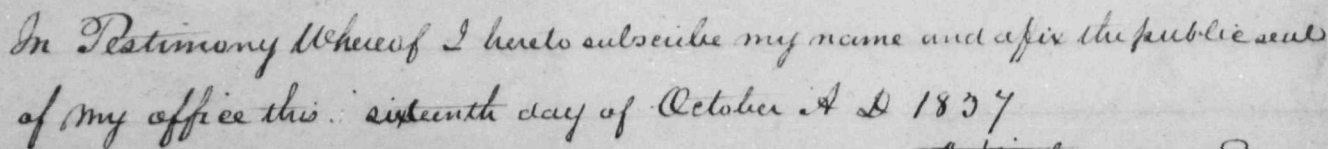 In Testimony Whereof I hereto subscribe my name and afix the public seal
of my office this sixteenth day of October A D 1837